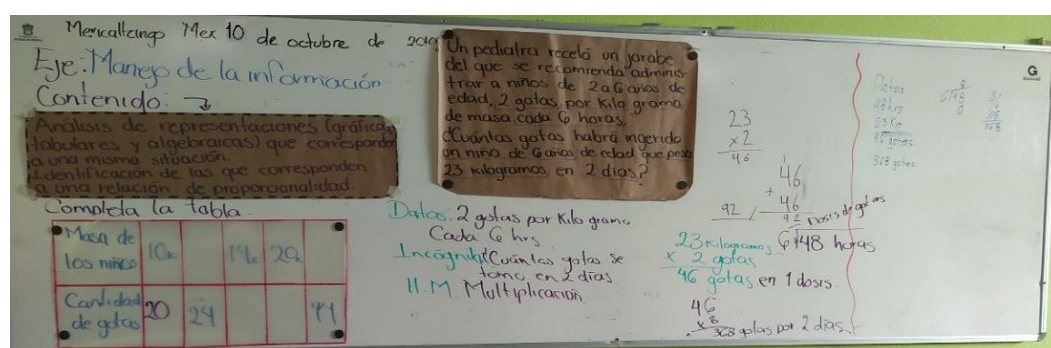 Mexicaltzingo Mex 10 de octubre de 2019
Eje: Manejo de la información
Contenido:
Análisis de representaciones (gráficas,
tabulares y algebraicas) que corresponden
a una misma situación.
Identificación de las que corresponden
a una relación de proporcionalidad
Completa la tabla.
Masa de los niños 10k 14k 20k
Cantidad de gotas 20 24 44
Un pediatra recetó un jarabe
del que se recomienda adminis-
trar a niños de 2 a 6 años de
edad, 2 gotas por kilo gramo
de masa cada 6 horas,
¿Cuántas gotas habrá ingerido
un niño de 6 años de edad que pesa
23 kilogramos en 2 días?
Datos: 2 gotas por kilo gramo
Cada 6 hrs
Incógnita: ¿Cuántas gotas se
tomó en 2 días.
H.M. Multiplicación.
23
x2
46
46
+
46
92
92
23 kilogramos
x 2 gotas
46 gotas en 1 dosis
46
x8
368 gotas por 2 días.
48 horas
Datos
48hrs
23 Kg
368 gotas
G